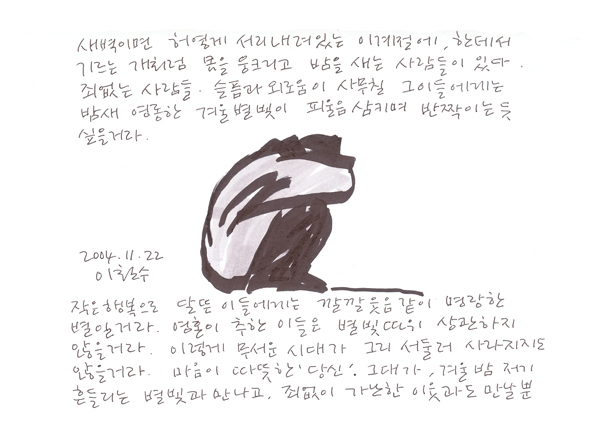 새벽이면 허옇게 서리내려있는 이계절에, 한데서
기르는 개처럼 몸을 웅크리고 밤을 새는 사람들이 있다.
죄없는 사람들. 슬픔과 외로움이 사무칠 그이들에게는
밤새 영롱한 겨울별빛이 피울음 삼키며 반짝이는 듯
싶을거라.
2004.11.22
이철수
작은행복으로 달뜬 이들에게는 깔깔웃음같이 명랑한
별일거라. 영혼이 추한 이들은 별빛따위 상관하지
않을거라. 이렇게 무서운 시대가 그리 서둘러 사라지지도
않을거라. 마음이 따뜻한 '당신'. 그대가, 겨울밤 저기
흔들리는 별빛과 만나고, 죄없이 가난한 이웃과도 만날 뿐